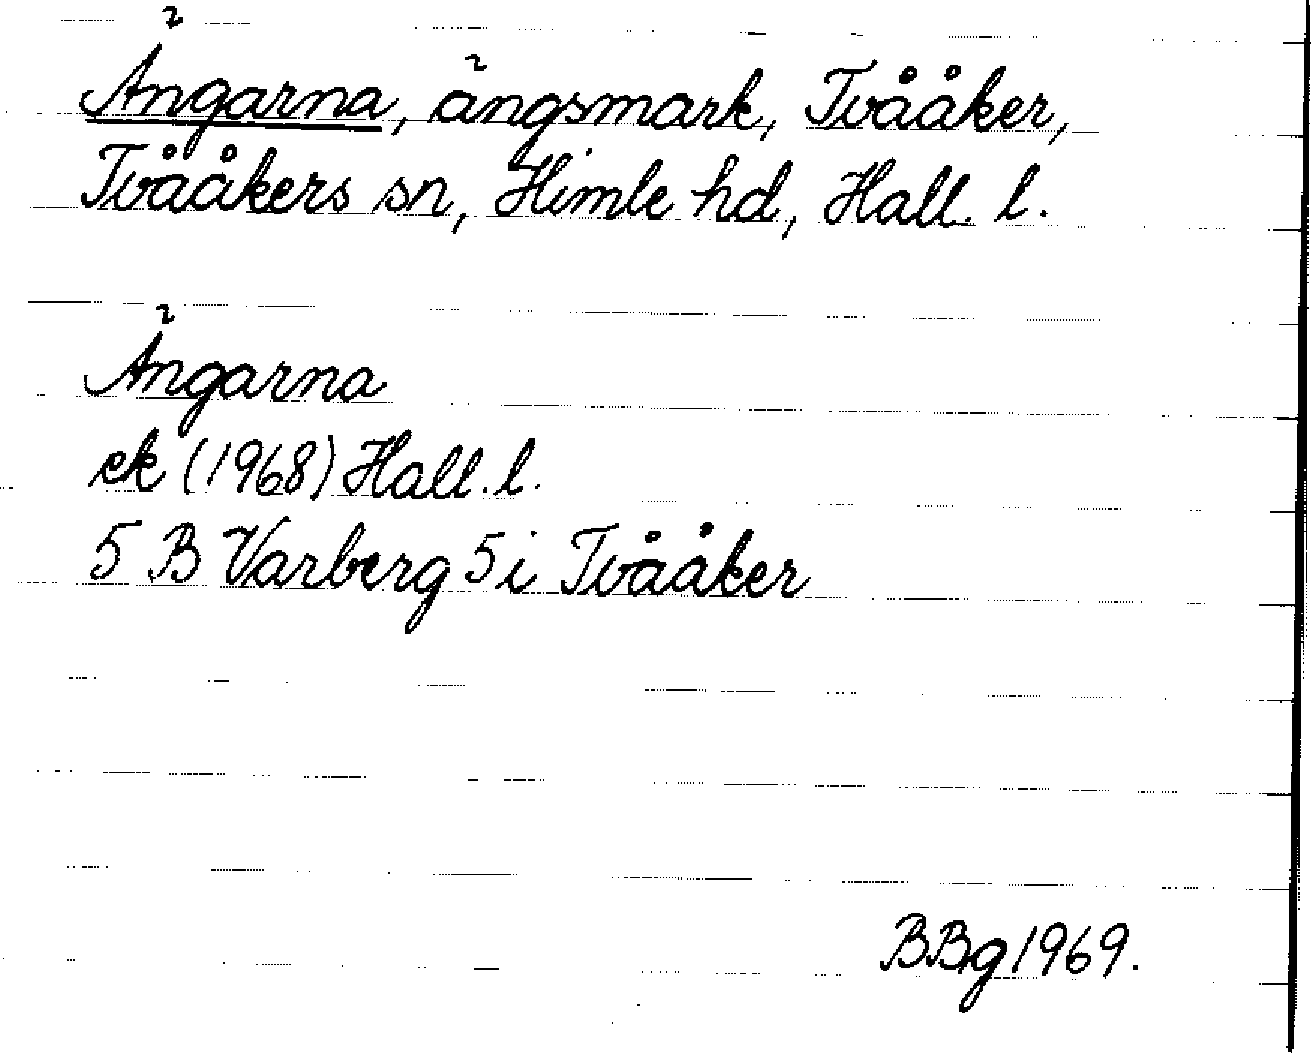 Ängarna, ängsmark, Tvååker,
Tvååkers sn, Himle hd, Hall. l.
Ängarna
ek (1968) Hall. l.
5 B Varberg 5 i Tvååker
BBg 1969.